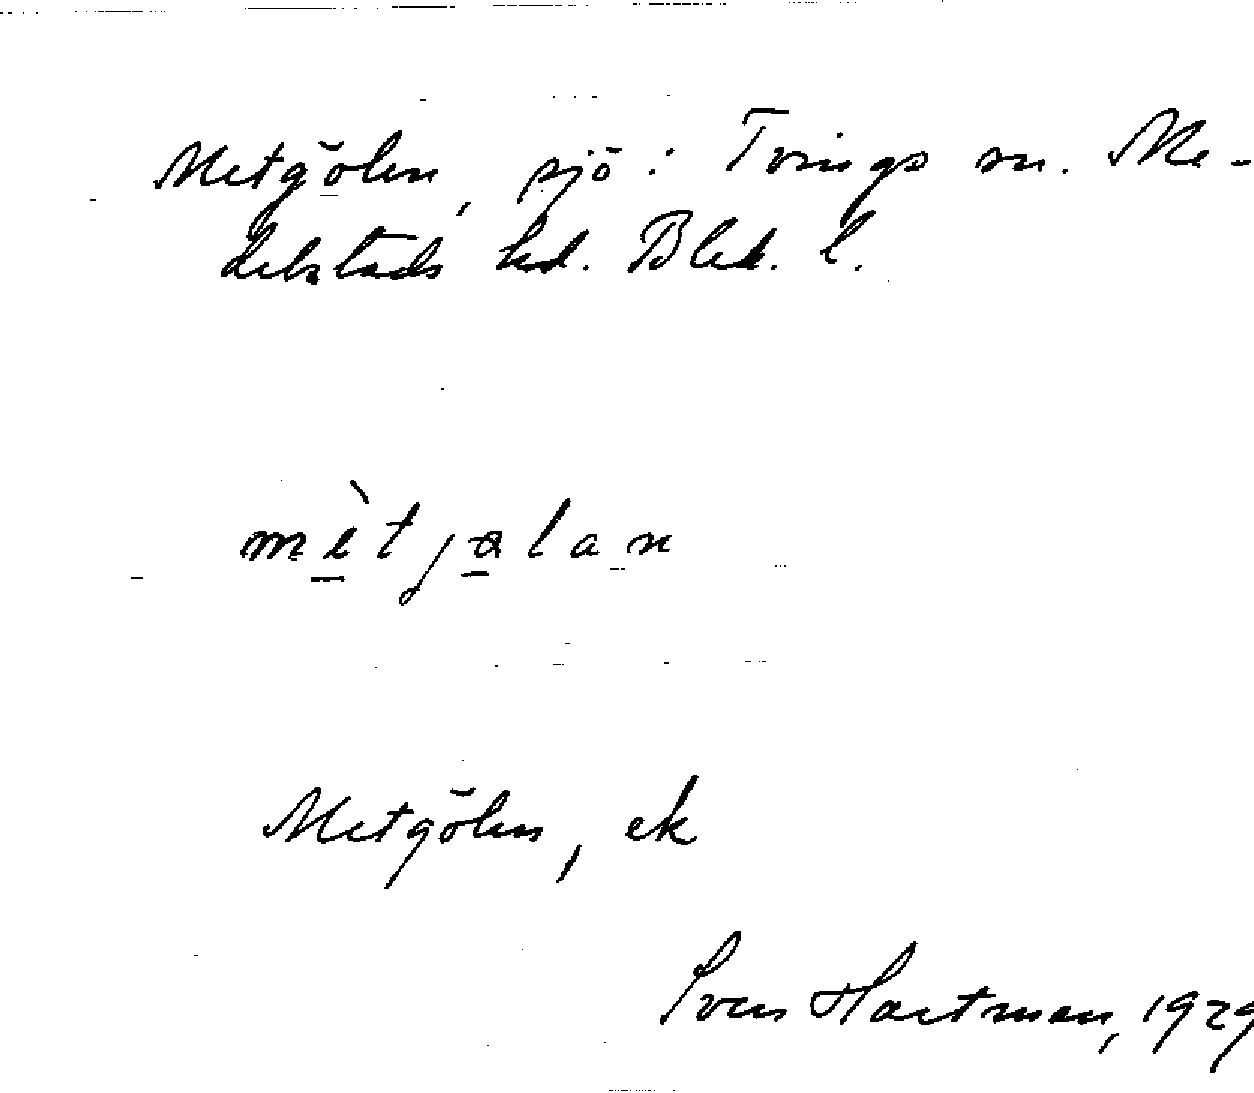 Metgölen, sjö: Tvings sn. Me-
delstads hd. Blek. l.
mètjalan
Metgölen, ek
Sven Hartman, 1929